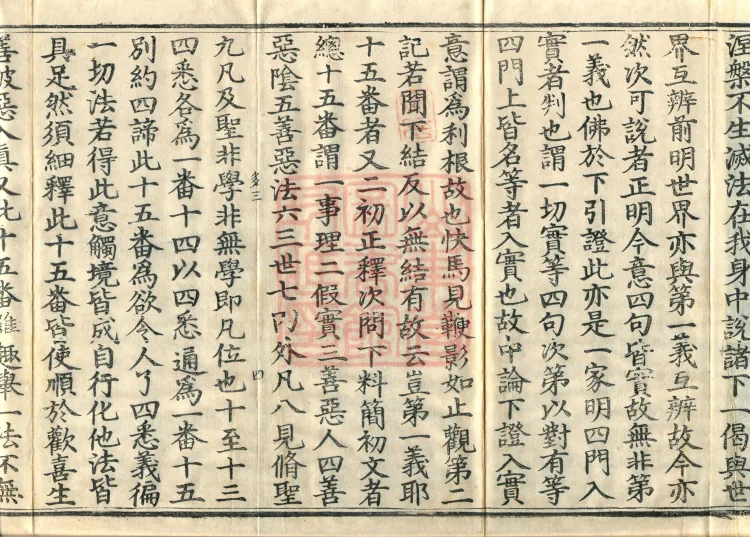 涅槃不生滅法在我身中說諸下一偈與世
界互辨前明世界亦與第一義互辨故今亦
然次可說者正明今意四句皆實故無非第
一義也佛於下引證此亦是一家明四門入
實者判也謂一切實等四句次第以對有等
四門上皆名等者入實也故中論下證入實
意謂為利根故也快馬見鞭影如止觀第二
記若聞下結反以無結有故云豈第一義耶
十五番者又二初正釋次問下料簡初文者
總十五番謂一事理二假實三善惡人四善
惡陰五善惡法六三世七內外凡八見脩聖
九凡及聖非學非無學即凡位也十至十三
四悉各為一番十四以四悉通為一番十五
別約四諦此十五番為欲令人了四悉義徧
一切法若得此意觸境皆成自行化他法皆
具足然須細釋此十五番皆使順於歡喜生
善破惡入真又此十五番雖趣舉一法不無